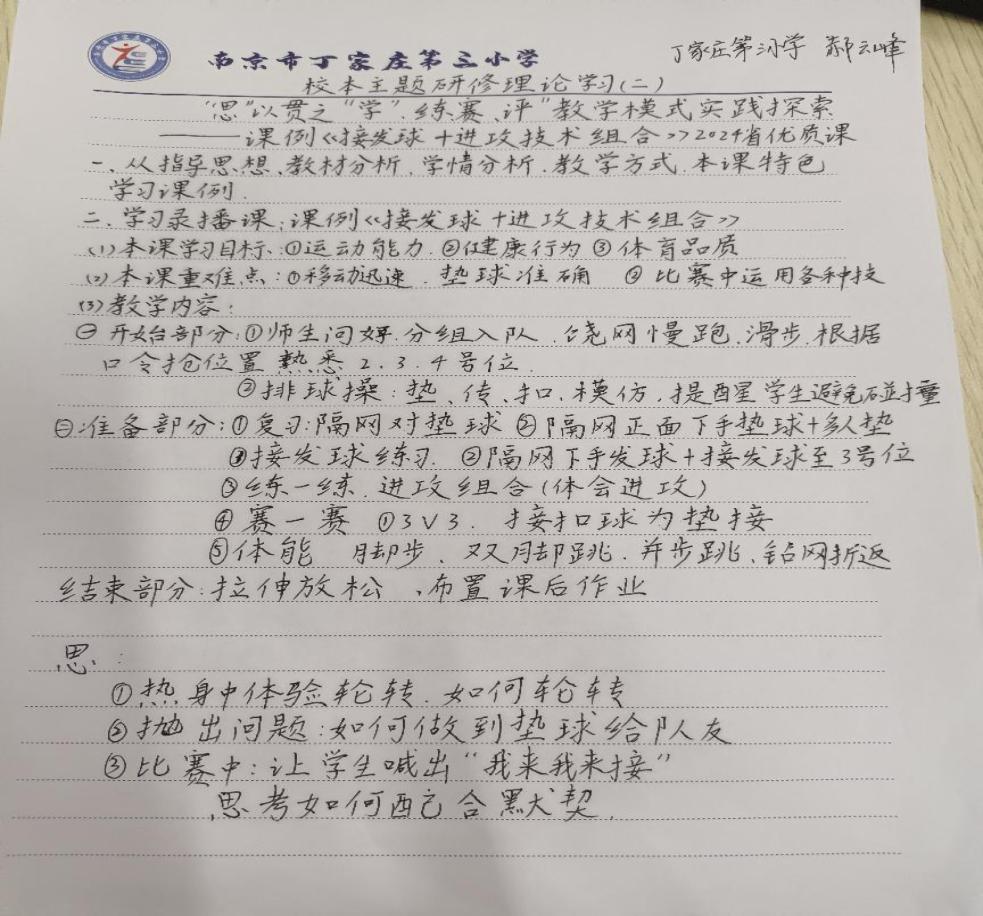 南京市丁家庄第三小学
丁家庄第三小学 郝云峰
校本主题研修理论学习(二)
"思"以贯之"学、练、赛、评"教学模式实践探索
——课例《接发球+进攻技术组合》2024省优质课
一、从指导思想、教材分析、学情分析、教学方式、本课特色
学习课例.
二、学习录播课:课例《接发球+进攻技术组合》
(1)本课学习目标:①运动能力 ②健康行为 ③体育品质
(2)本课重难点:①移动迅速、垫球准确 ②比赛中运用各种技
(3)教学内容:
㊀开始部分:①师生问好.分组入队、绕网慢跑、滑步.根据
口令抢位置 熟悉2.3.4号位.
②排球操:垫、传、扣、模仿,提醒学生避免碰撞
㊁准备部分:①复习:隔网对垫球 ②隔网正面下手垫球+多人垫
①接发球练习. ②隔网下手发球+接发球至3号位
③练一练.进攻组合(体会进攻)
④赛一赛 ①3V3. 接扣球为垫接
⑤体能 脚步、双脚跳.并步跳、钻网折返
结束部分:拉伸放松、布置课后作业
思:
①热身中体验轮转.如何轮转
②抛出问题:如何做到垫球给队友
③比赛中:让学生喊出"我来我来接"
思考如何配合默契.